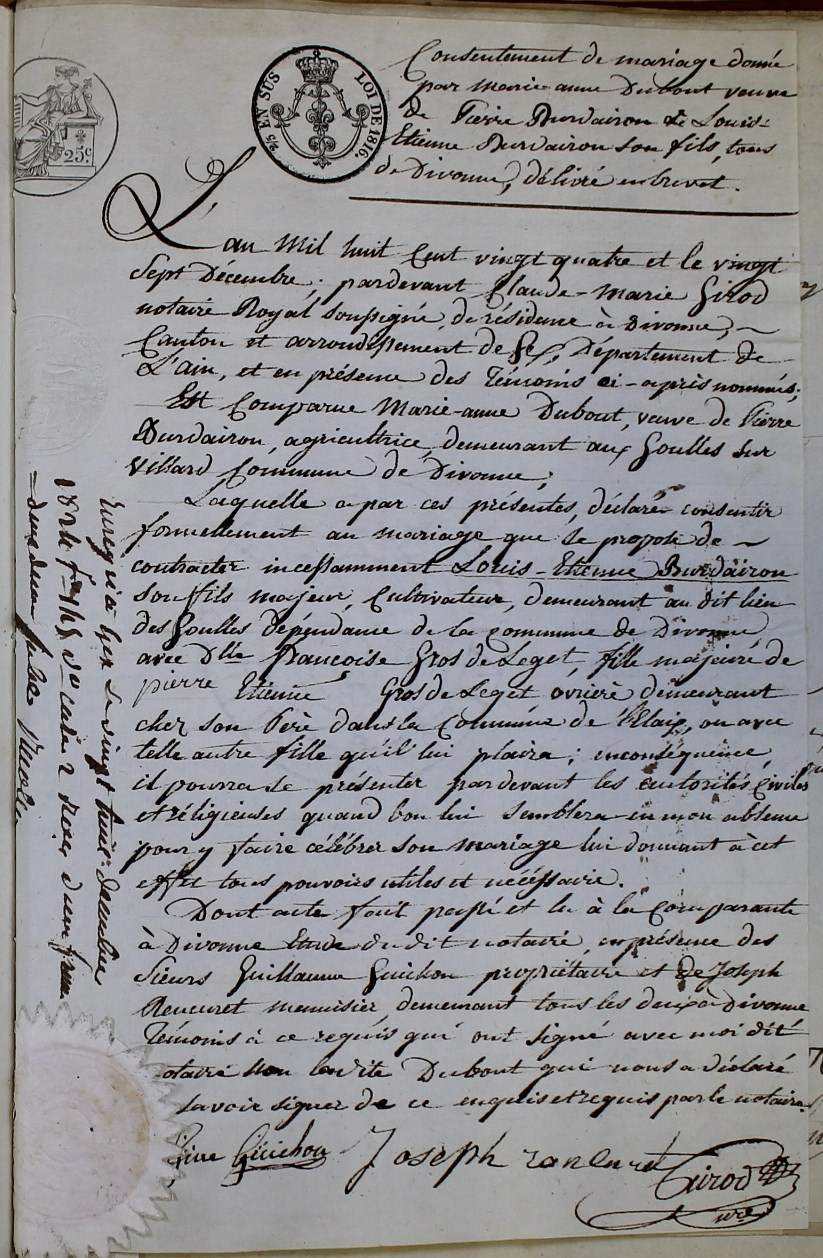 Consentement de mariage donné
par Marie-anne Dubout veuve
de Pierre Burdairon à Louis-
Etienne Burdairon son fils, tous
de Divonne, délivré en brevet.
2/5 EN SUS
LOI DE 1816.
25c
L'an Mil huit Cent vingt quatre et le vingt
Sept Décembre; pardevant Claude-Marie Girod
notaire Royal soussigné, de résidence à Divonne,
Canton et arrondissement de Gex, Département de
L'ain, et en présence des Témoins ci-après nommés;
Est Comparue Marie-anne Dubout, veuve de Pierre
Burdairon, agricultrice, demeurant aux Goulles sur
Villard Commune de Divonne;
Laquelle a par ces présentes, déclaré consentir
formellement au mariage que se propose de
contracter incessamment Louis-Etienne Burdairon
son fils majeur, Cultivateur, demeurant au dit lieu
des Goulles dépendance de la commune de Divonne,
avec Dlle françoise Gros de Leget, fille majeure de
pierre Etienne Gros de Leget ovriere demeurant
chez son Père dans la Commune de, ou avec
telle autre fille qu'il lui plaira; en conséquence,
il pourra se présenter pardevant les autorités Civiles
et réligieuses quand bon lui semblera en mon absence
pour y faire célébrer son mariage lui donnant à cet
effet tous pouvoirs utiles et nécessaire.
Dont acte fait passé et lu à la Comparante
à Divonne Etude du dit notaire, en présence des
Sieurs Guillaume Guichon propriétaire et de Joseph
menuisier, demeurant tous les deux à Divonne
Témoins à ce requis qui ont signé avec moi dit
otaire Non ladite Dubout qui nous a déclaré
savoir signer de ce enquis et requis par le notaire.
Guichon Joseph Girod
Enregistré à Gex le vingt huit Décembre
1824 fo case 2 reçu un franc